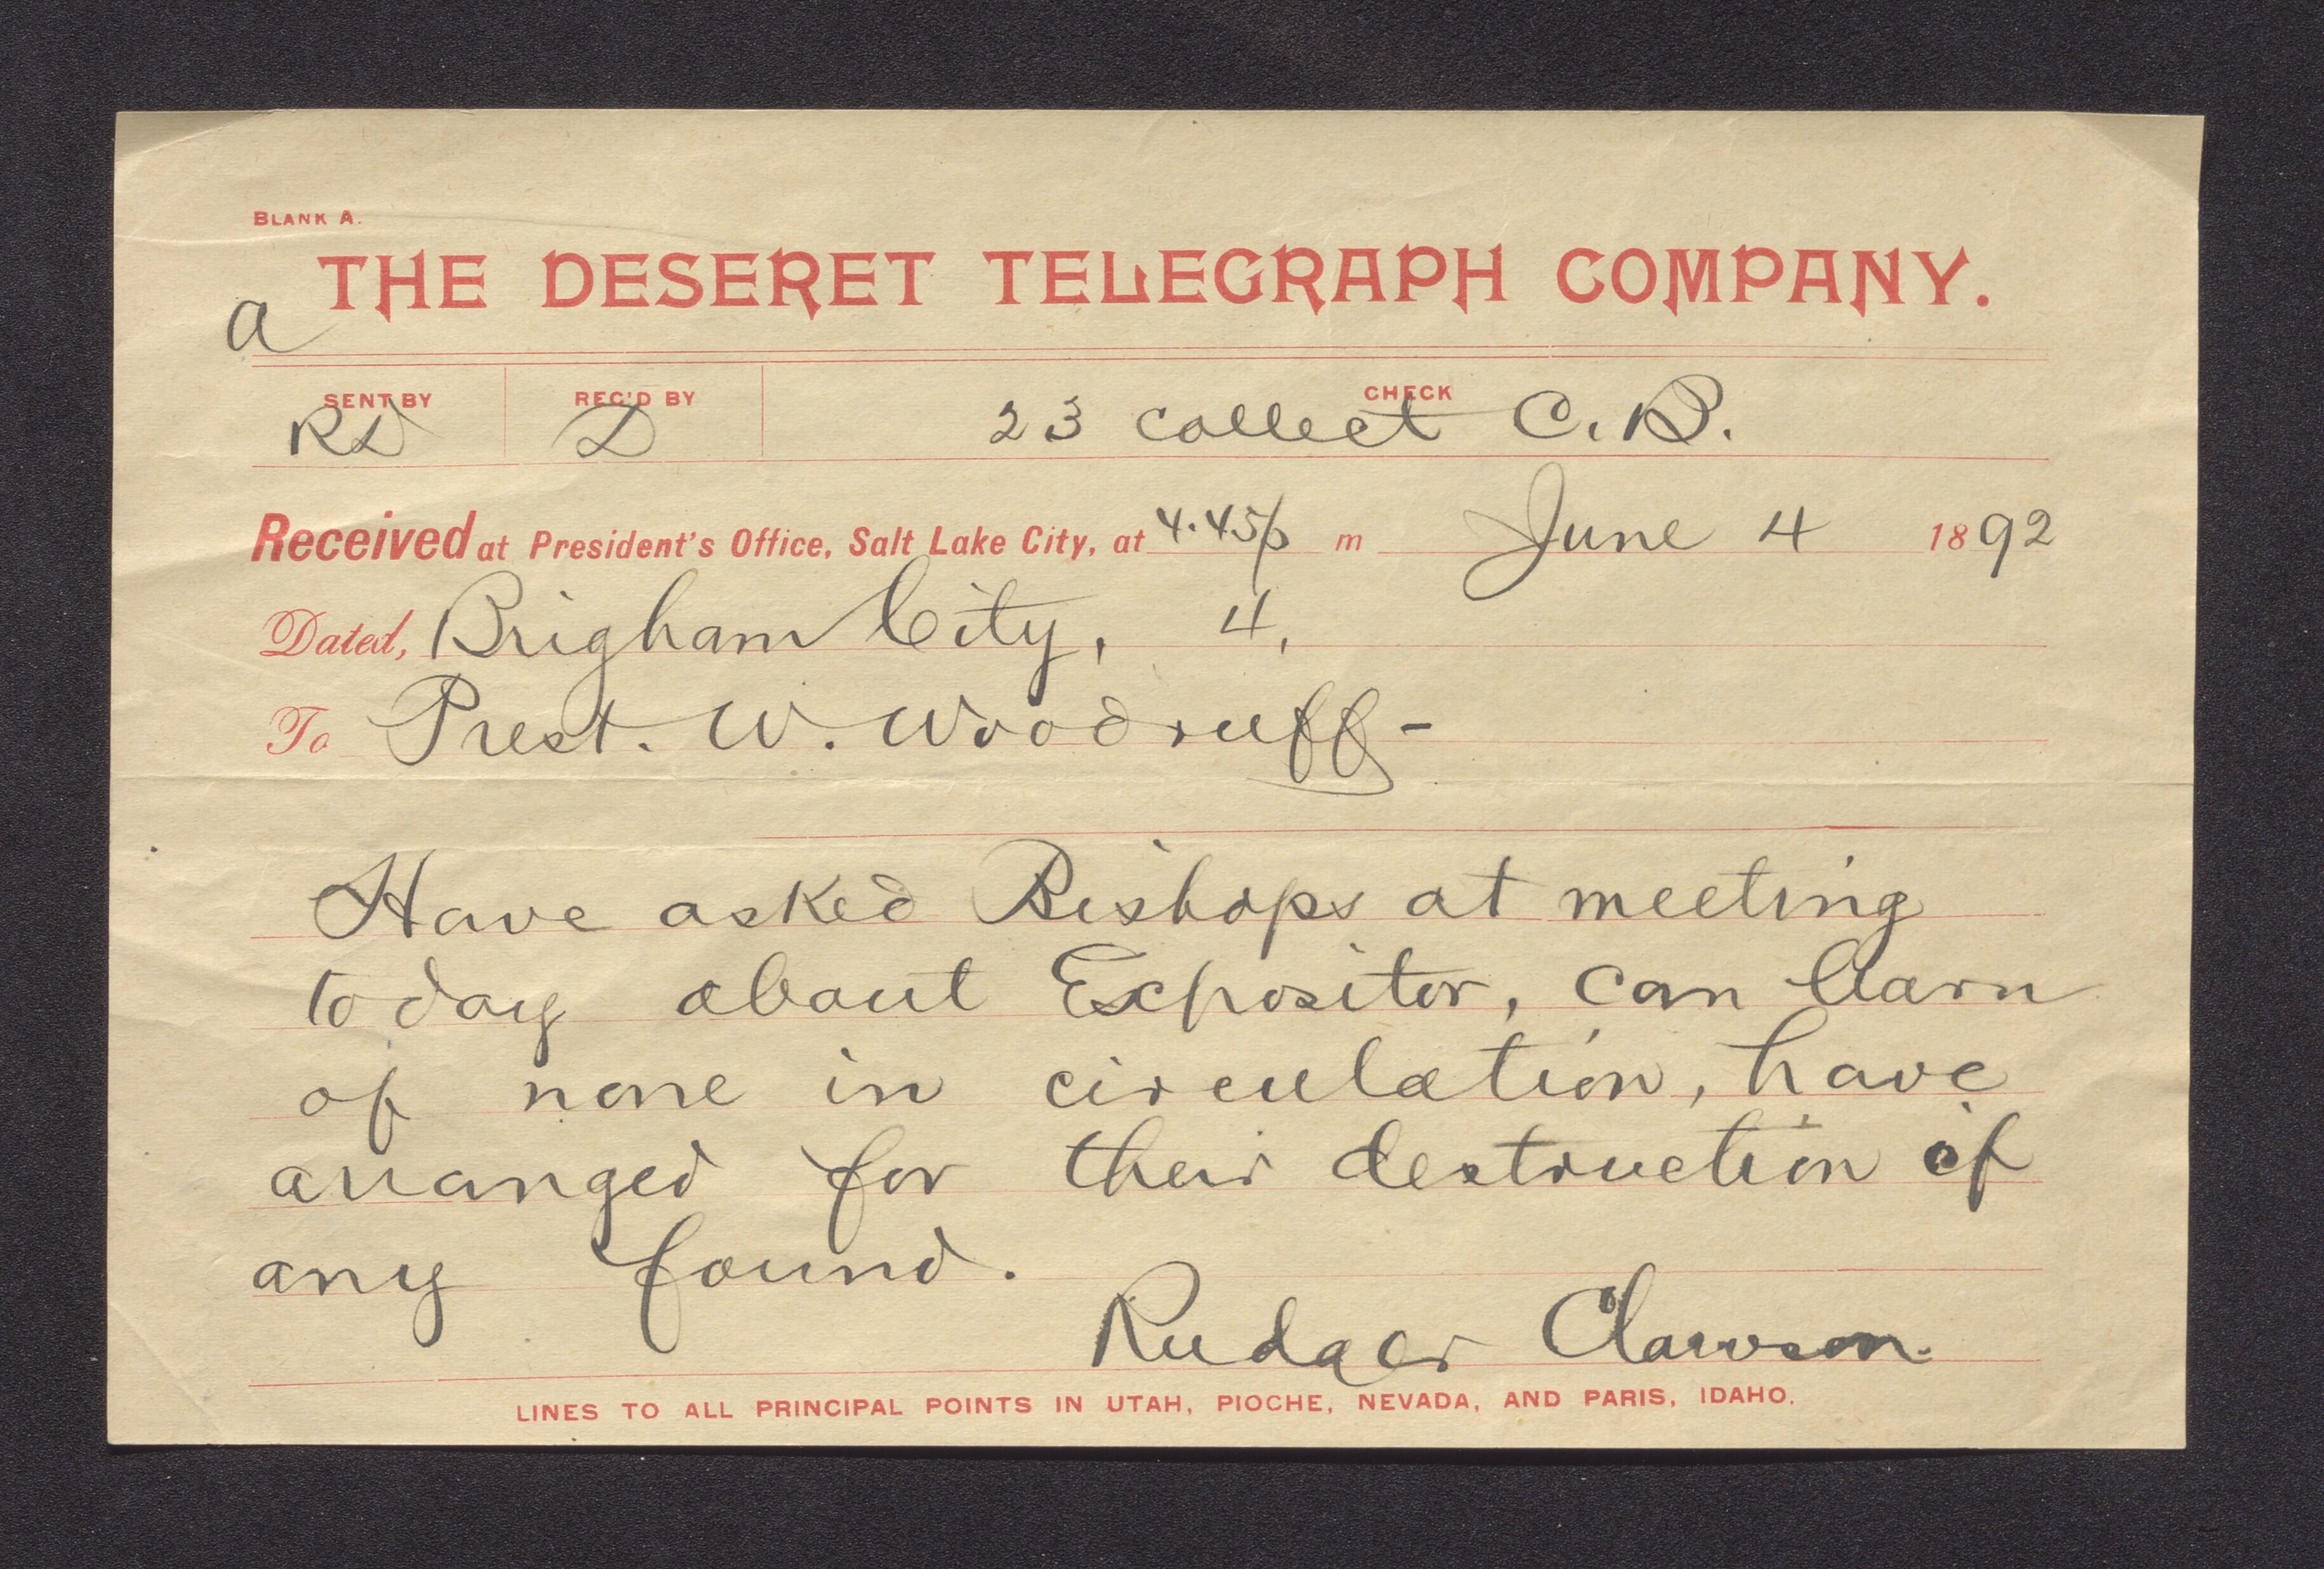 BLANK A.
THE DESERET TELEGRAPH COMPANY.
a
SENT BY REC'D BY CHECK
RD D 23 collect C.B.
Received at President's Office, Salt Lake City, at 4.45p m June 4 1892
Dated, Brigham City, 4,
To Prest. W. Woodruff-
Have asked Bishops at meeting
today about Expositor, can learn
of none in circulation, have
arranged for their destruction if
any found.
Rudger Clawson.
LINES TO ALL PRINCIPAL POINTS IN UTAH, PIOCHE, NEVADA, AND PARIS, IDAHO.